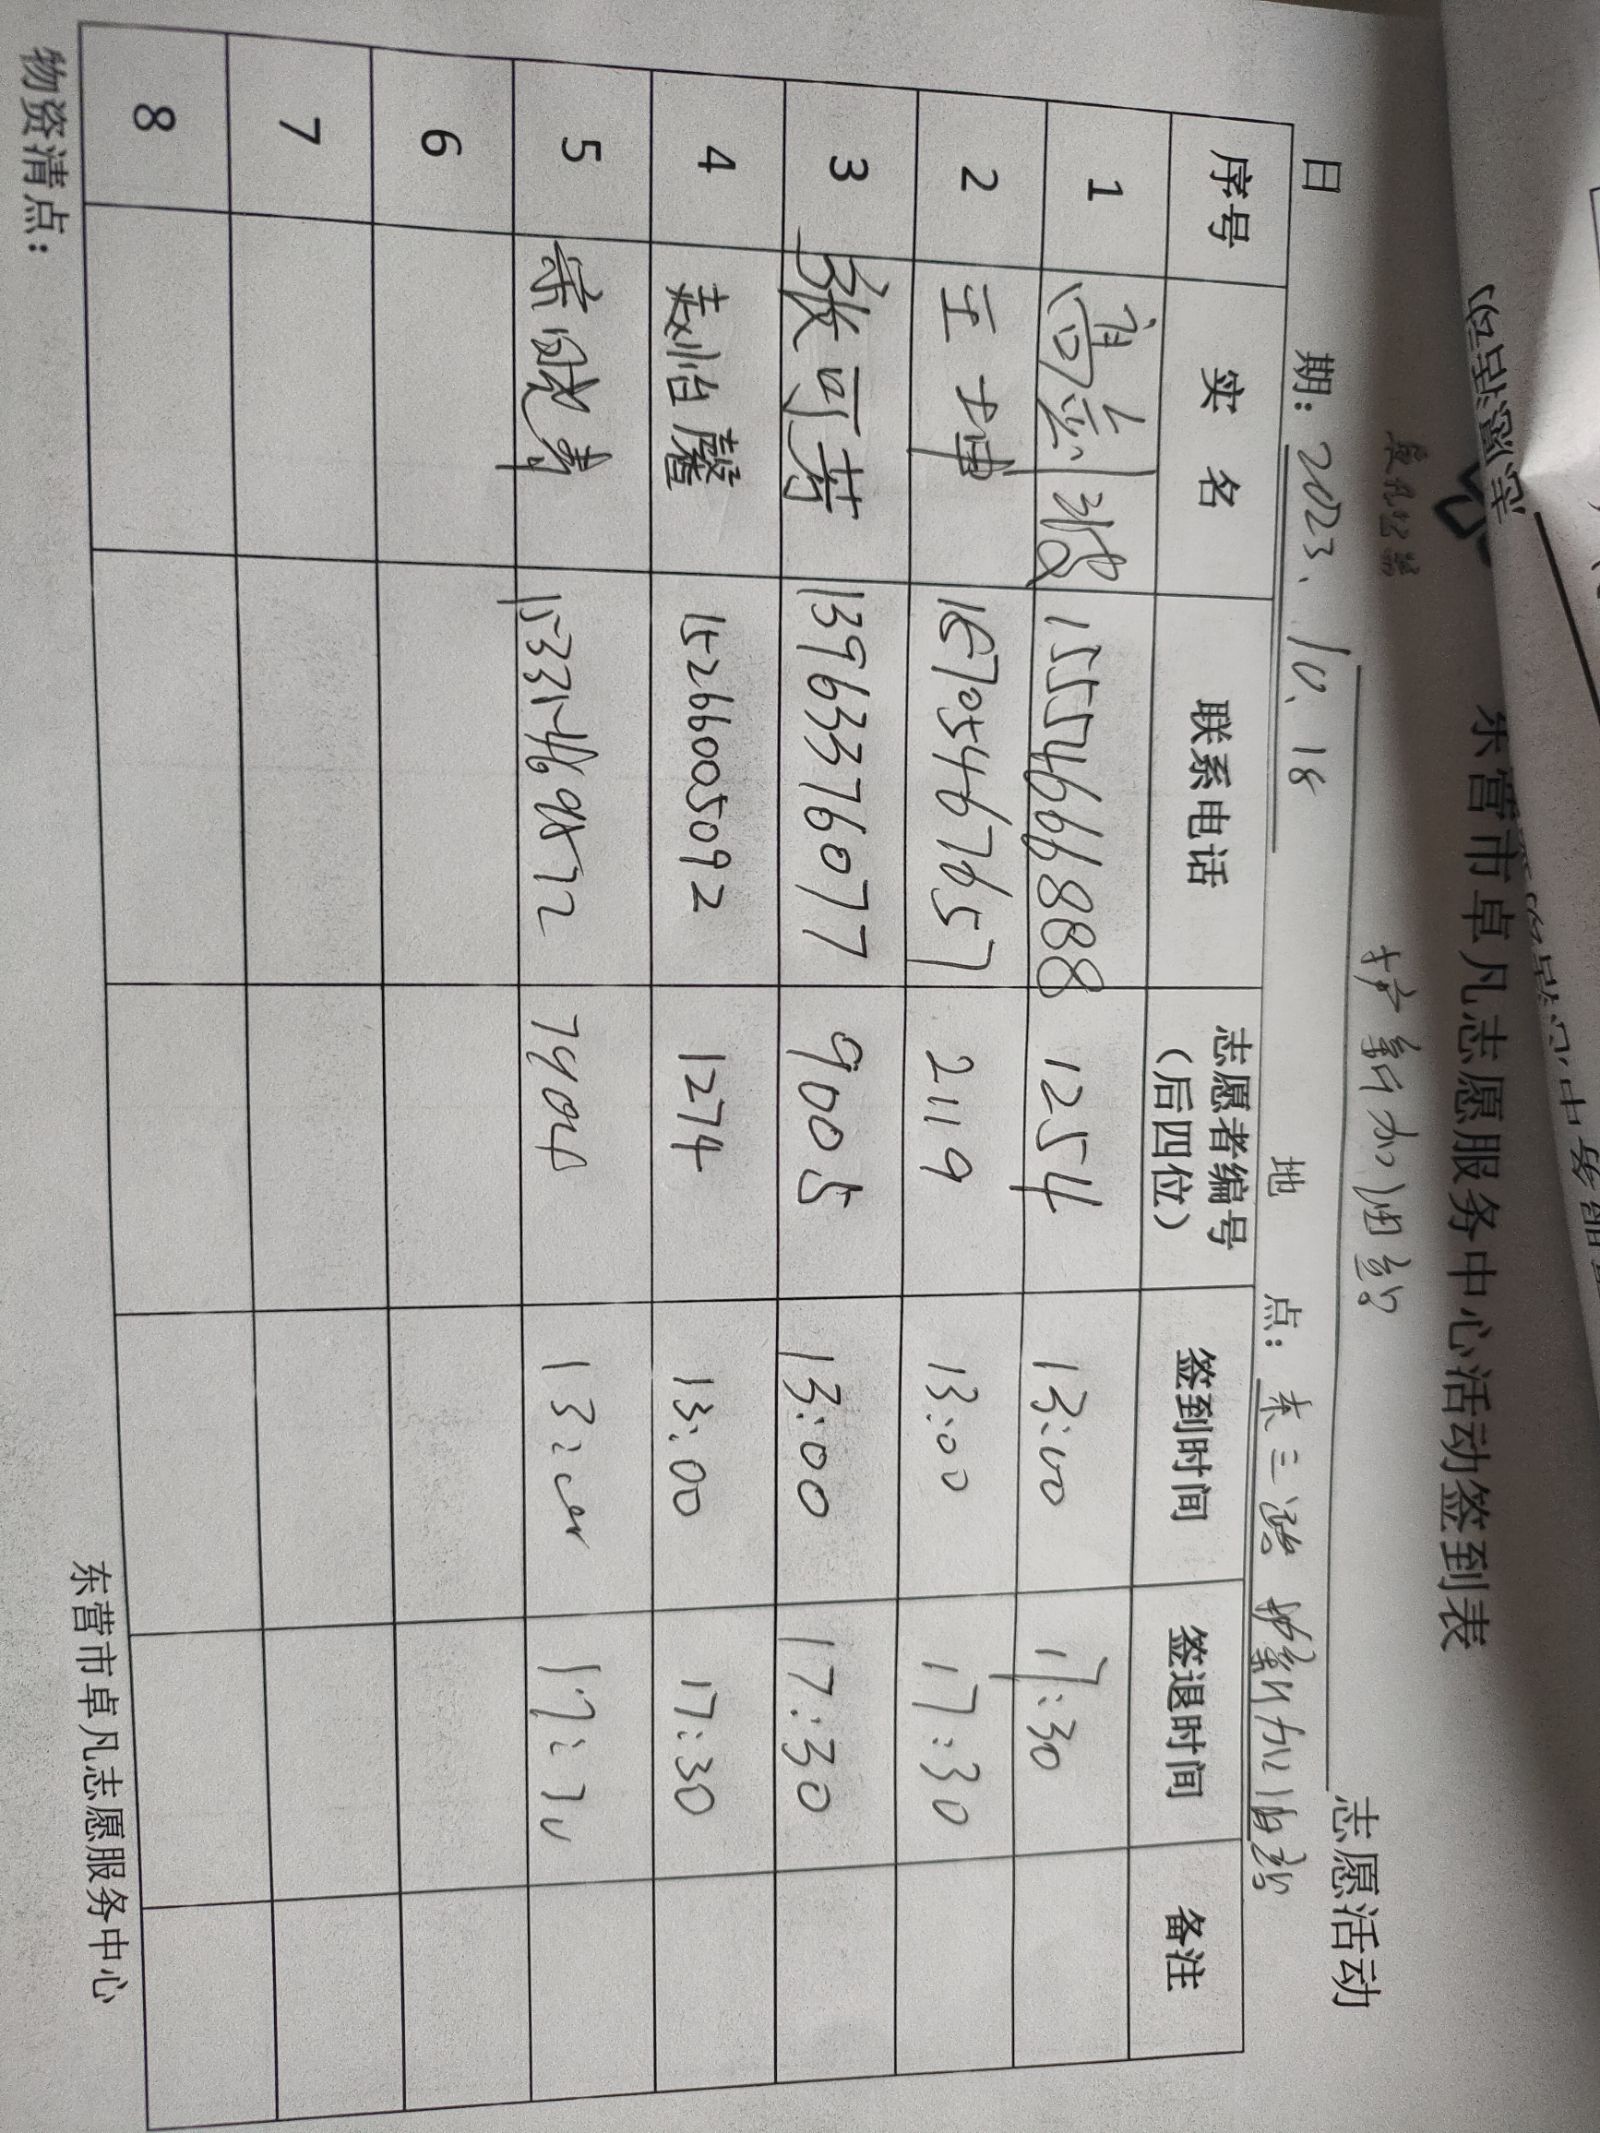 东营市卓凡志愿服务中心活动签到表
护新加油站 志愿活动
日 期：2023.10.18 地 点：东三路 护新加油站
序号 实 名 联系电话 志愿者编号（后四位） 签到时间 签退时间 备注
1 15554666888 1254 13:00 17:30
2 王坤 18705467657 2119 13:00 17:30
3 张可梦 13963376077 9005 13:00 17:30
4 赵怡馨 15266005092 1274 13:00 17:30
5 13:00 17:30
6
7
8
物资清点：
东营市卓凡志愿服务中心